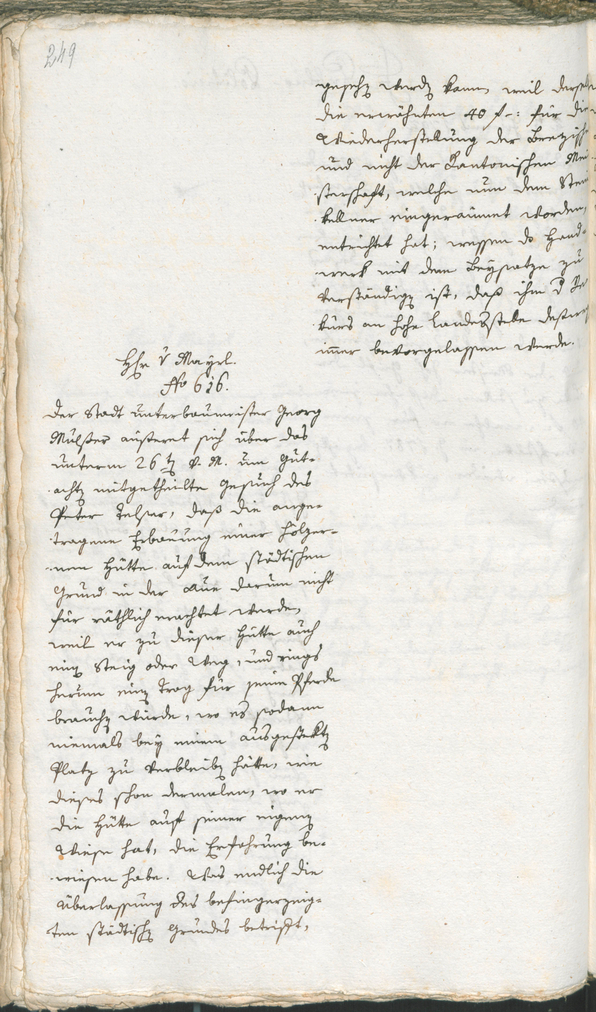 249
gesehen werden kann, weil derselbe
die erwähnten 40 f: für die
Wiederherstellung der
und nicht der Kantonischen Mei-
sterschaft, welche nun dem Stein-
keller eingeräumet worden,
entrichtet hat; wessen das Hand-
werk mit dem Beysatze zu
verständigen ist, daß ihm der Re-
kurs an hohe Landesstelle
immer bevorgelassen werde.
Hhr v Mayrl.
No 616.
Der Stadt unterbaumeister Georg
äußeret sich über das
unterm 26ten d. M. um Gut-
achten mitgetheilte Gesuch des
Peter Telser, daß die ange-
tragene Erbauung einer hölzer-
nen Hütte auf dem städtischen
Grund in der Aue darum nicht
für räthlich erachtet werde,
weil er zu dieser Hütte auch
einen Steig oder Weg, und rings
herum einen Trog für seine Pferde
brauchen würde, wo es sodann
niemals bey einem ausgesteckten
Platz zu verbleiben hätte, wie
dieses schon dermalen, wo er
die Hütte auf seiner eigenen
Wiese hat, die Erfahrung be-
wiesen habe. Was endlich die
Überlassung des befingerzeig-
ten städtischen Grundes betrift,